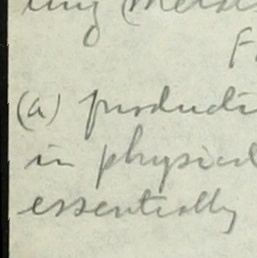 (a) producti
in physical
essentially